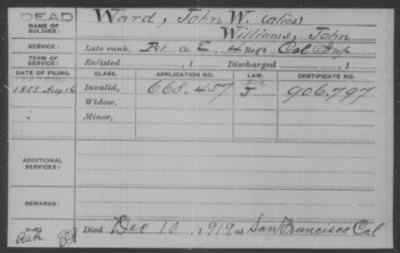 DEAD
NAME OF SOLDIER:
Ward, John W. (alias)
Williams, John
SERVICE:
Late rank, Pvt. Co. E, 4 Reg't Cal Inf
TERM OF SERVICE:
Enlisted , 1 Discharged , 1
DATE OF FILING. CLASS. APPLICATION NO. LAW. CERTIFICATE NO.
1888 Aug 16 Invalid, 668.457 J 906.797
Widow,
Minor,
ADDITIONAL SERVICES:
REMARKS:
Died Dec 10, 1919, at San Francisco Cal